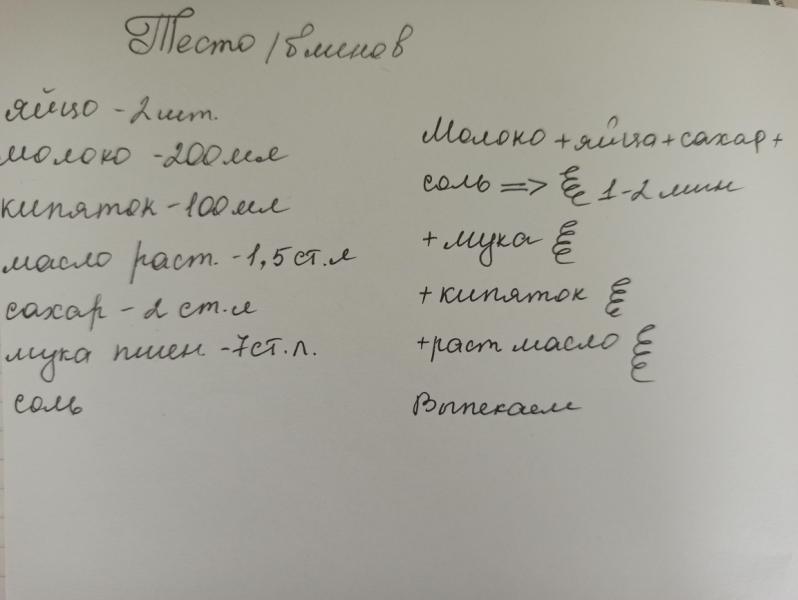 Тесто /блинов
яйцо - 2 шт.
молоко - 200 мл
кипяток - 100 мл
масло раст. - 1,5 ст.л
сахар - 2 ст.л
мука пшен - 7 ст.л.
соль
Молоко + яйца + сахар +
соль => 1-2 мин
+ мука
+ кипяток
+ раст масло
Выпекаем